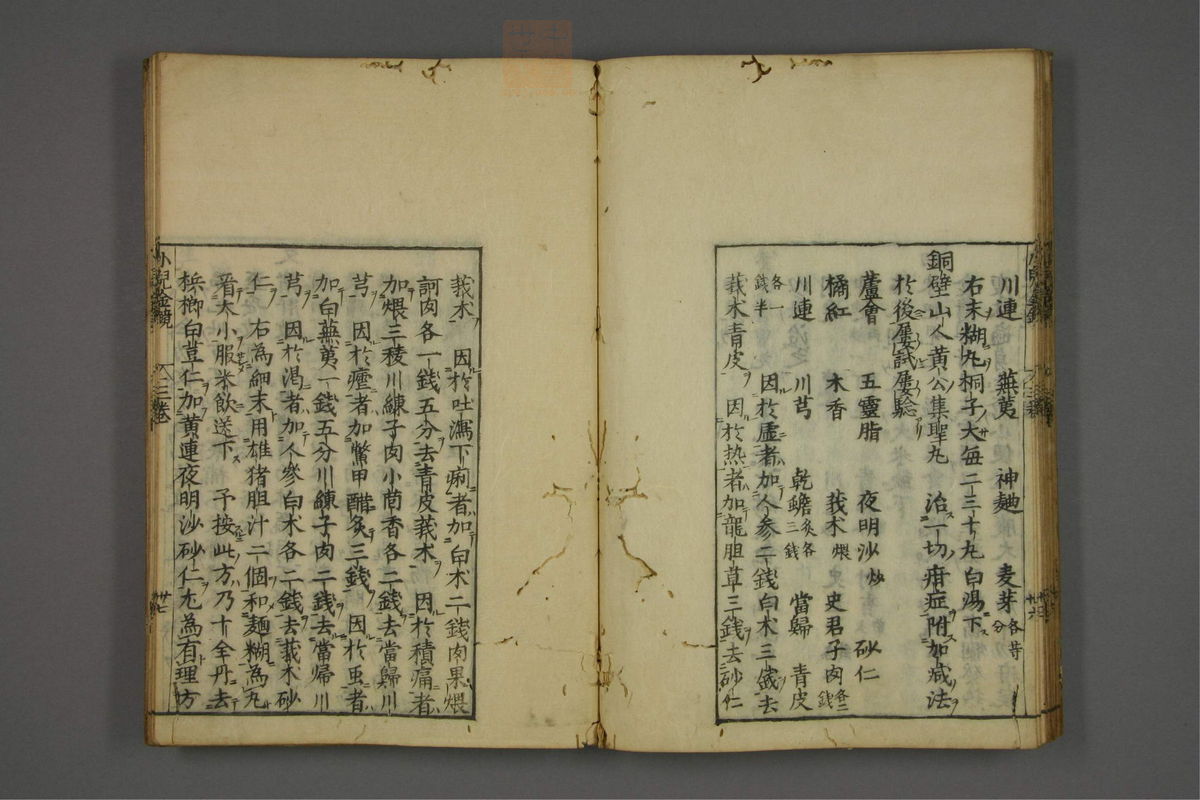 川連　蕪荑　神麯　麦芽各等分
右末糊丸桐子大每二三十丸白湯下
銅壁山人黃公集聖丸　治一切疳症附加减法
於後屢試屢驗
蘆會　五靈脂　夜明沙炒　砂仁
橘紅　木香　莪术煨　史君子肉各二錢
川連　川芎　乾蟾炙各三錢　當歸　青皮
各一錢半　因於虛者加人參二錢白术三錢去
莪术青皮　因於热者加龍胆草三錢去砂仁
莪术　因於吐瀉下痢者加白术二錢肉果煨
訶肉各一錢五分去青皮莪术　因於積痛者
加煨三稜川練子肉小茴香各二錢去當歸川
芎　因於瘧者加鱉甲醋炙三錢　因於虫者
加白蕪荑一錢五分川練子肉二錢去當帰川
芎　因於渴者加人參白术各二錢去莪术砂
仁　右為細末用雄猪胆汁二個和麵糊為丸
看大小服米飲送下　予按此方乃十全丹去
梹榔白荳仁加黃連夜明沙砂仁尤為有理方
小兒
三卷
廿七
廿六